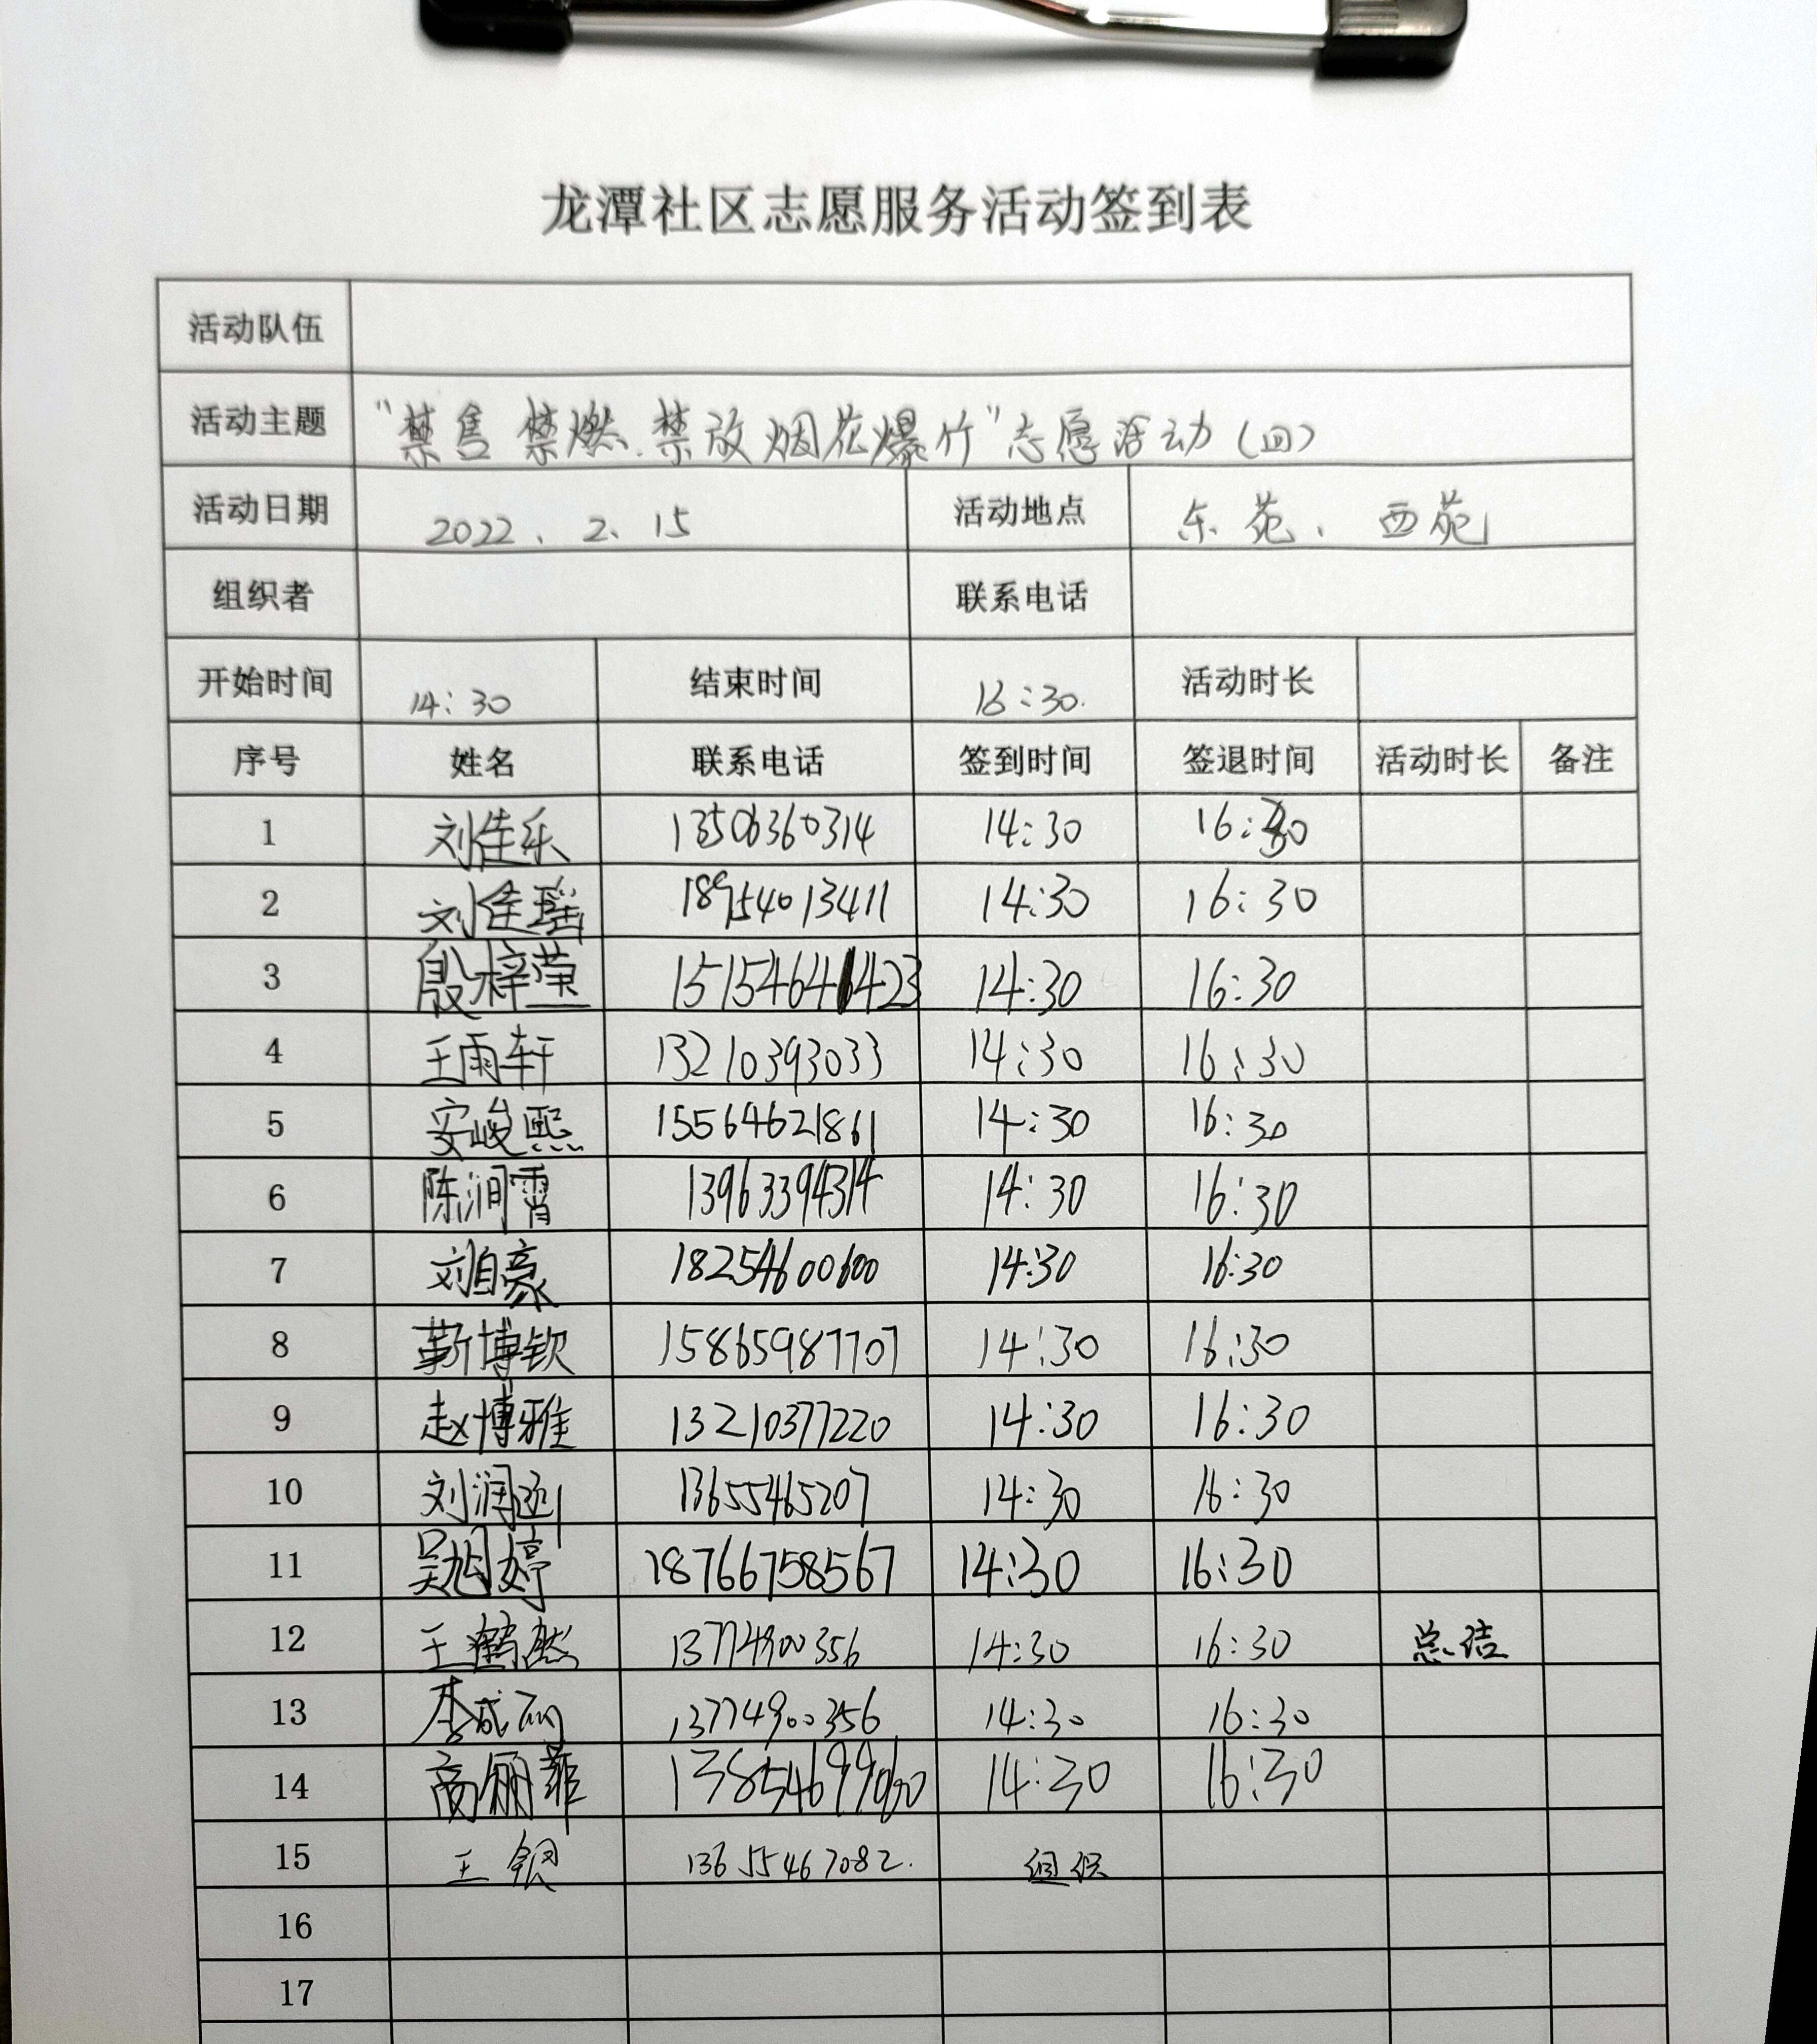 龙潭社区志愿服务活动签到表
活动队伍
活动主题 “禁售禁燃.禁放烟花爆竹”志愿活动(四)
活动日期 2022、2、15 活动地点 东苑、西苑
组织者 联系电话
开始时间 14:30 结束时间 16:30. 活动时长
序号 姓名 联系电话 签到时间 签退时间 活动时长 备注
1 刘佳乐 13506360314 14:30 16:30
2 刘佳瑶 18954013411 14:30 16:30
3 殷梓莹 15154641423 14:30 16:30
4 王雨轩 13210393033 14:30 16:30
5 安峻熙 15564621861 14:30 16:30
6 陈润霄 13963394314 14:30 16:30
7 刘自豪 18254600600 14:30 16:30
8 靳博钦 15865987707 14:30 16:30
9 赵博雅 13210377220 14:30 16:30
10 刘润函 13655465207 14:30 16:30
11 吴旭婷 18766758567 14:30 16:30
12 王鹤然 13774900356 14:30 16:30 总结
13 13774900356 14:30 16:30
14 商丽菲 14:30 16:30
15 王银 13655467082. 组织
16
17